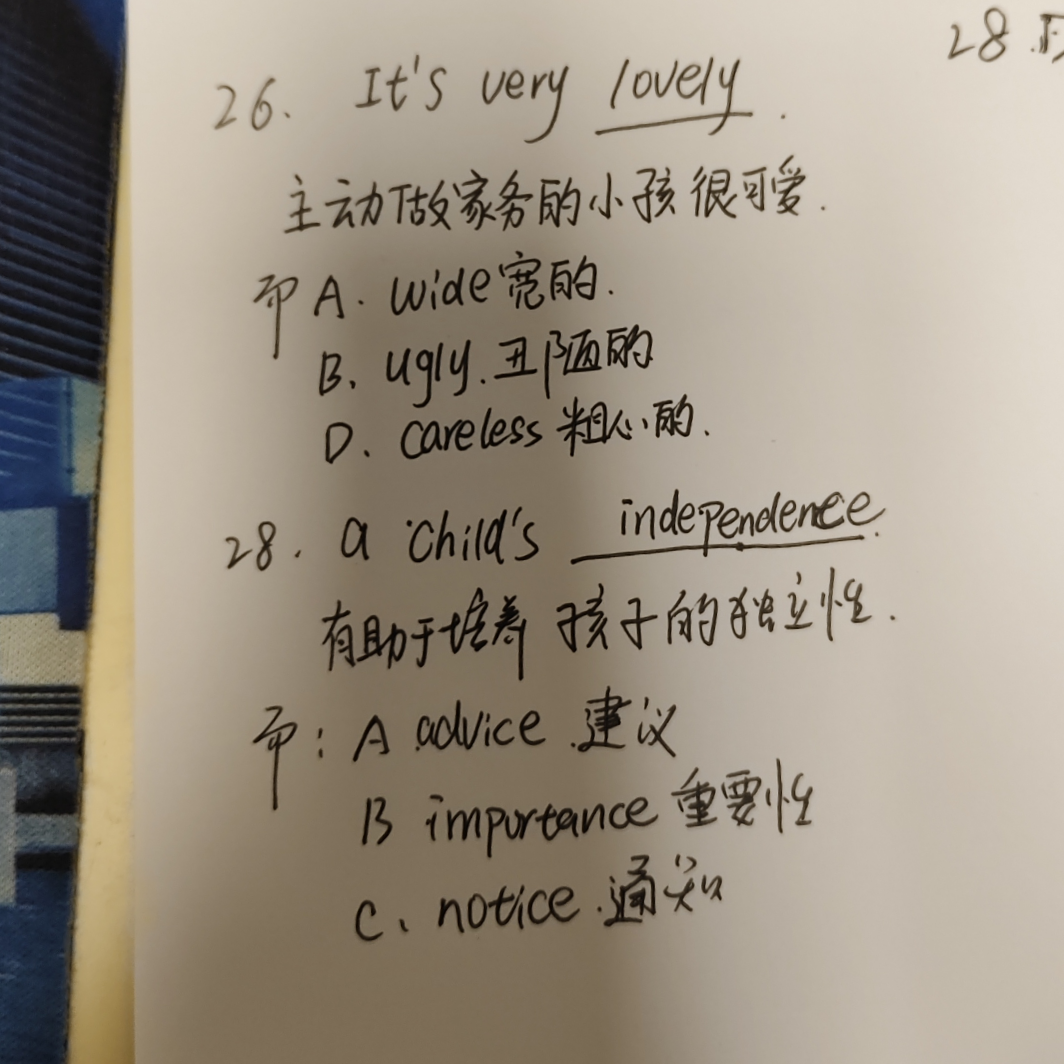 28.
26. It's very lovely.
主动做家务的小孩很可爱.
A. wide 宽的.
B. ugly. 丑陋的
D. careless 粗心的.
28. a child's independence.
有助于培养 孩子的独立性.
: A advice 建议
B importance 重要性
C. notice. 通知